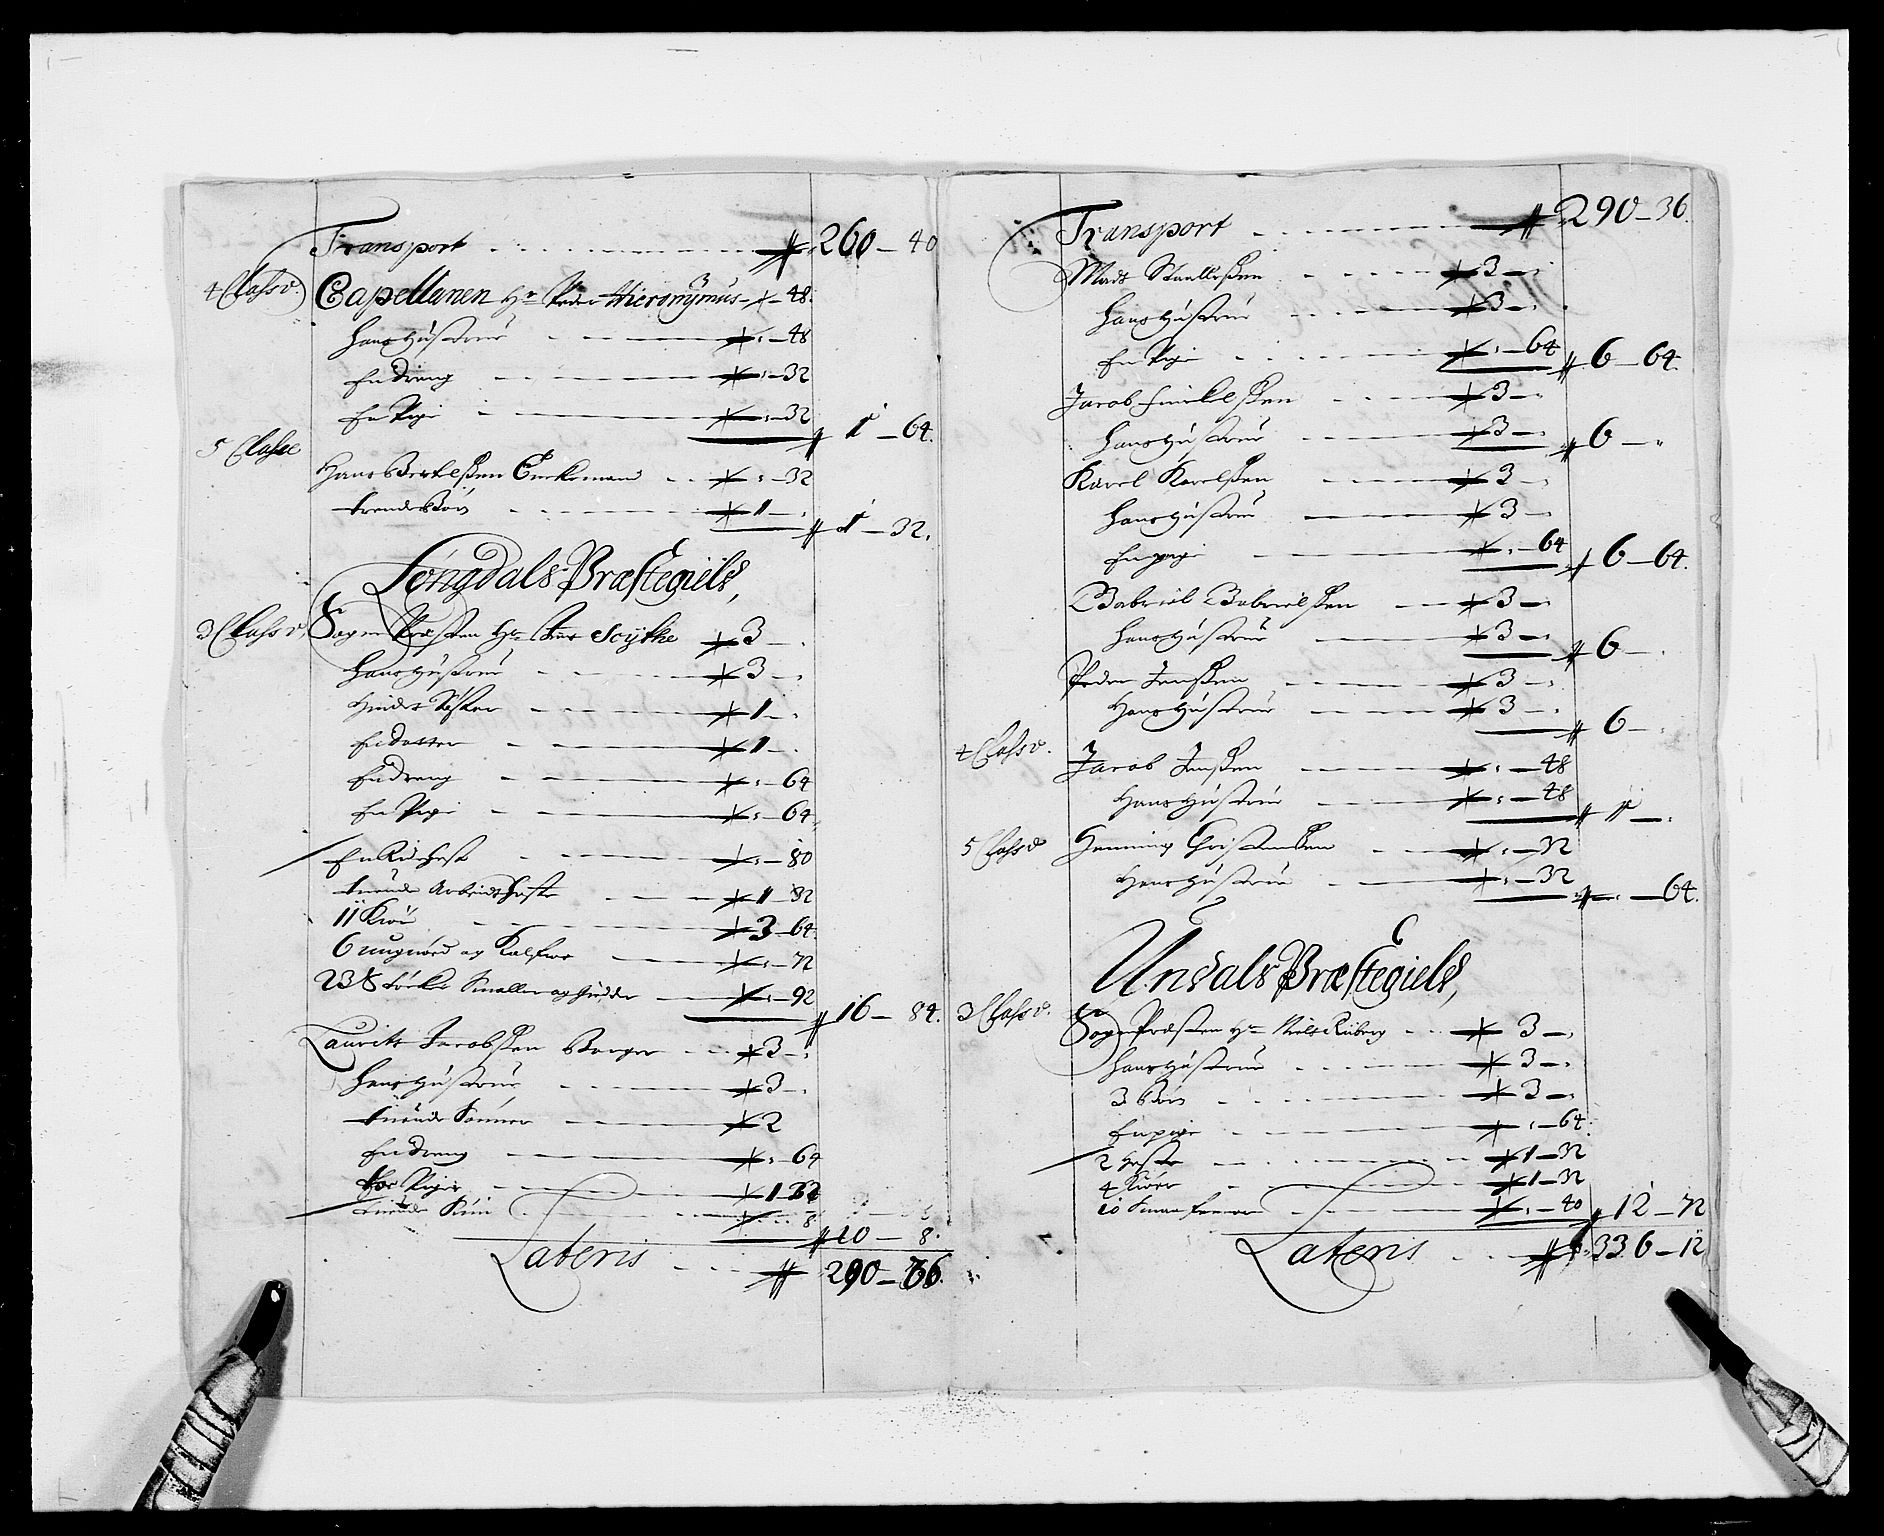 Transport - - - - - 260 - 40
4 Classe
Capellanen Hr Peder Hieronymus - 48
Hans Hustrue - - - 48
En Dreng - - - 32
En Pige - - - 32
1 - 64.
5 Classe
Hans Bertelsen - - 32
trende Børn - - - 1 -
1 - 32.
Löngdals Præstegield,
3 Classe, Sogne Præsten Hr Scÿtke 3 -
Hans Hustrue - - - 3 -
Hindes Søster - - - 1 -
En Datter - - - 1 -
En Dreng - - - 64
En Pige - - - 64
En Ridhest - - - 80
tvende Arbeidsheste - - 1 - 32
11 Kiør - - - 3 - 64
6 ungnød og Kalfve - - 72
23 støcker Smaller og Giedder - 92
16 - 84.
Lauritz Jacobsen - - 3 -
Hans Hustrue - - - 3 -
tvende Sønner - - - 2
En Dreng - - - 64
toe Piger - - - 1 - 32
tvende Kiør - - - 8
10 - 8.
Lateris - - - 290 - 36.
Transport - - - - 290 - 36.
Mads - - - 3 -
Hans Hustrue - - - 3 -
En Pige - - - 64
6 - 64.
Jacob - - - 3 -
Hans Hustrue - - - 3 -
6 -
Karel Karelsen - - - 3 -
Hans Hustrue - - - 3 -
En pige - - - 64
6 - 64.
Gabriel Gabrielsen - - 3 -
Hans Hustrue - - - 3 -
6 -
Peder Jensen - - - 3 -
Hans Hustrue - - - 3 -
6 -
4 Classe.
Jacob Jensen - - - 48
Hans Hustrue - - - 48
1 -
5 Classe
Henning Christensen - - 32
Hans Hustrue - - - 32
64.
Undals Præstegield,
3 Classe.
Sogne Præsten Hr Niels - - 3 -
Hans Hustrue - - - 3 -
3 Børn - - - 3 -
En pige - - - 64
2 Heste - - - 1 - 32
4 Kiør - - - 1 - 32
10 - - - 40
12 - 72
Lateris - - - 336 - 12